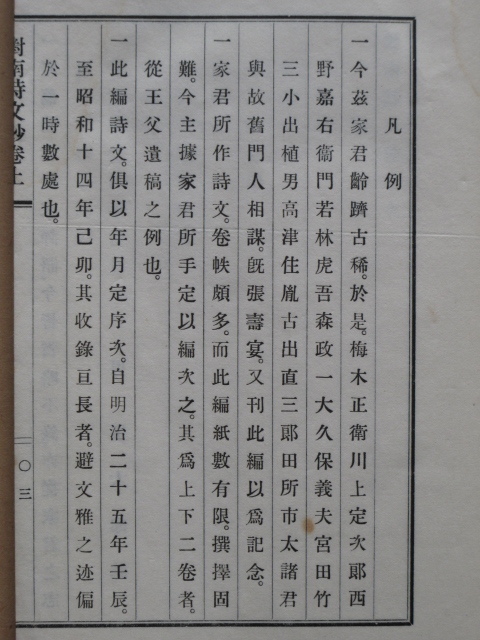 凡例
一今茲家君齡躋古稀。於是。梅木正衞川上定次郎西
野嘉右衞門若林虎吾森政一大久保義夫宮田竹
三小出植男高津住胤古出直三郎田所市太諸君
與故舊門人相謀。旣張壽宴。又刊此編以爲記念。
一家君所作詩文。卷帙頗多。而此編紙數有限。撰擇固
難。今主據家君所手定以編次之。其爲上下二卷者。
從王父遺稿之例也。
一此編詩文。俱以年月定序次。自明治二十五年壬辰。
至昭和十四年己卯。其收錄亘長者。避文雅之迹偏
於一時數處也。
對南詩文鈔卷上
〇三